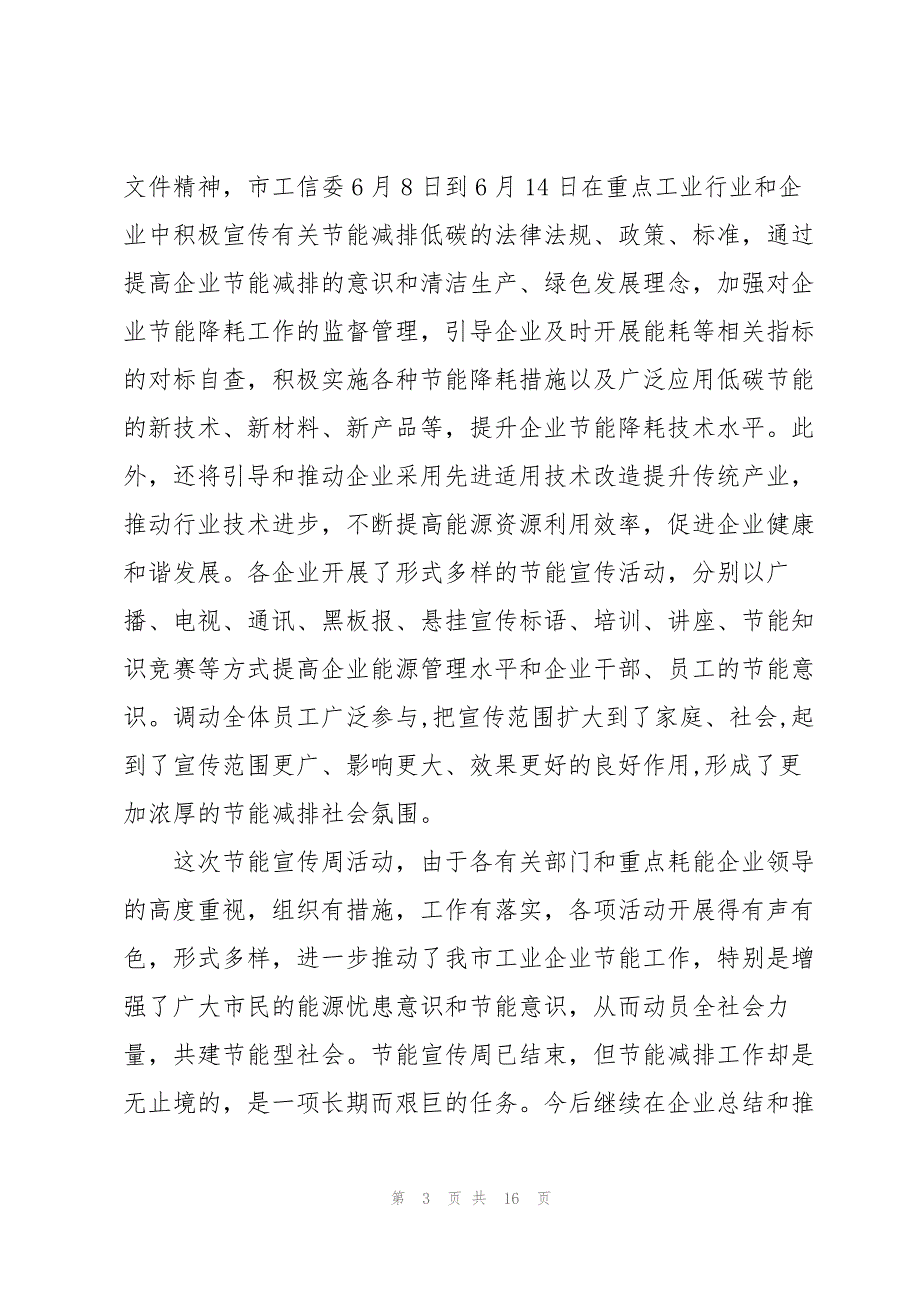 文件精神，市工信委 6 月 8 日到 6 月 14 日在重点工业行业和企
业中积极宣传有关节能减排低碳的法律法规、政策、标准，通过
提高企业节能减排的意识和清洁生产、绿色发展理念，加强对企
业节能降耗工作的监督管理，引导企业及时开展能耗等相关指标
的对标自查，积极实施各种节能降耗措施以及广泛应用低碳节能
的新技术、新材料、新产品等，提升企业节能降耗技术水平。此
外，还将引导和推动企业采用先进适用技术改造提升传统产业，
推动行业技术进步，不断提高能源资源利用效率，促进企业健康
和谐发展。各企业开展了形式多样的节能宣传活动，分别以广
播、电视、通讯、黑板报、悬挂宣传标语、培训、讲座、节能知
识竞赛等方式提高企业能源管理水平和企业干部、员工的节能意
识。调动全体员工广泛参与,把宣传范围扩大到了家庭、社会,起
到了宣传范围更广、影响更大、效果更好的良好作用,形成了更
加浓厚的节能减排社会氛围。
这次节能宣传周活动，由于各有关部门和重点耗能企业领导
的高度重视，组织有措施，工作有落实，各项活动开展得有声有
色，形式多样，进一步推动了我市工业企业节能工作，特别是增
强了广大市民的能源忧患意识和节能意识，从而动员全社会力
量，共建节能型社会。节能宣传周已结束，但节能减排工作却是
无止境的，是一项长期而艰巨的任务。今后继续在企业总结和推
第 3 页 共 16 页